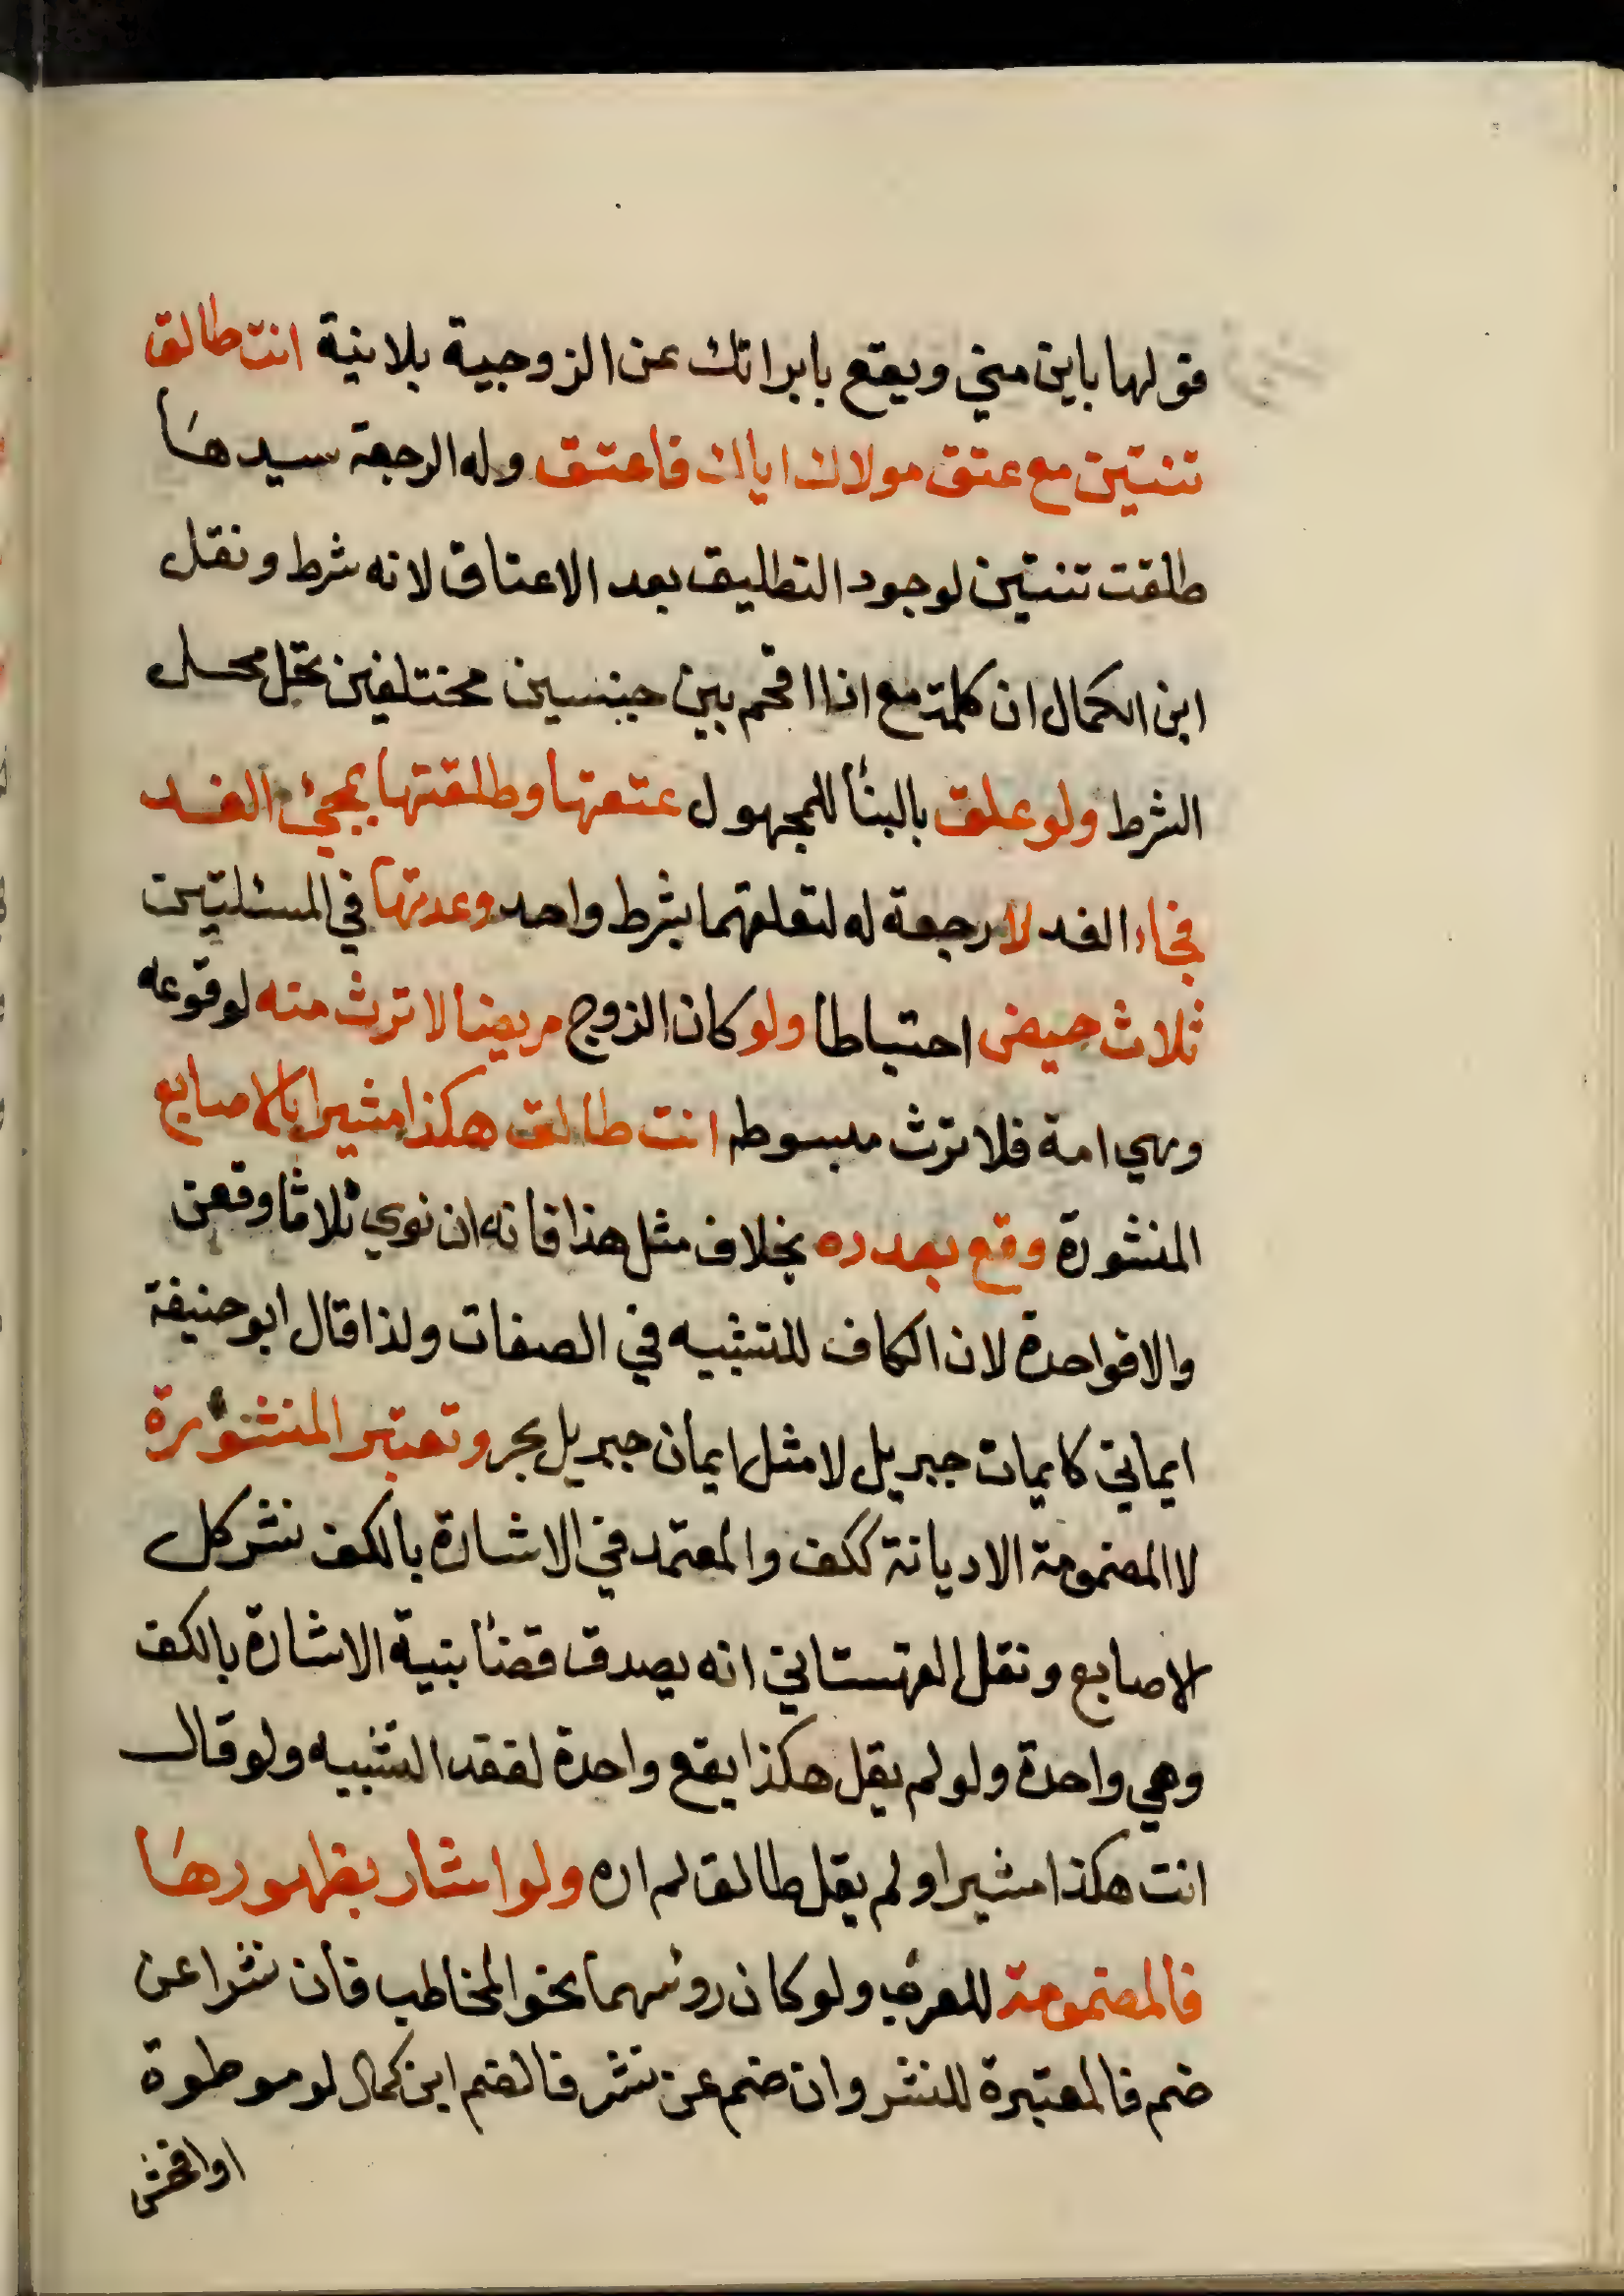 قولها باين مني ويقع بابراتك عن الزوجية بلا نية انت طالق
تنتين مع عتق مولاك اياك فاعتق وله الرجعة سيدها
طلقت تنتين لوجود التطليق بعد الاعتاق لانه شرط ونقل
ابن الكمال ان كلمة مع اذا اقحم بين جنسين مختلفين تحل محل
الشرط ولو علق بالبنأ للمجهول عتقتها وطلقتها بمجئ الغد
فجاء الغد لا رجعة له لتعلقهما بشرط واحد وعدتها في المسئلتين
ثلاث حيض احتياطا ولو كان الزوج مريضا لا ترث منه لوقوعه
وهي امة فلا ترث مبسوطه انت طالق هكذا مشيرا بالاصابع
المنشورة وقع بعدده بخلاف مثل هذا فانه ان نوي ثلاثا وقعن
والا فواحدة لان الكاف للتشبيه في الصفات ولذا قال ابو حنيفة
ايماني كايمات جبريل لا مثل ايمان جبريل بحر وتعتبر المنشورة
لا المضمومة الا ديانة ككف والمعتمد في الاشارة بالكف نشر كل
الاصابع ونقل القهستاني انه يصدق قضأ بنية الاشارة بالكف
وهي واحدة ولو لم يقل هكذا يقع واحدة لفقد التشبيه ولو قال
انت هكذا مشيرا ولم يقل طالق لم اره ولو اشار بظهورها
فالمضمومة للعرف ولو كان رؤسهما نحو المخاطب فان نشرا عن
ضم فالمعتبرة للنشر وان ضم عن نشر فالضم ابن كمال لو موطوة
او افحش